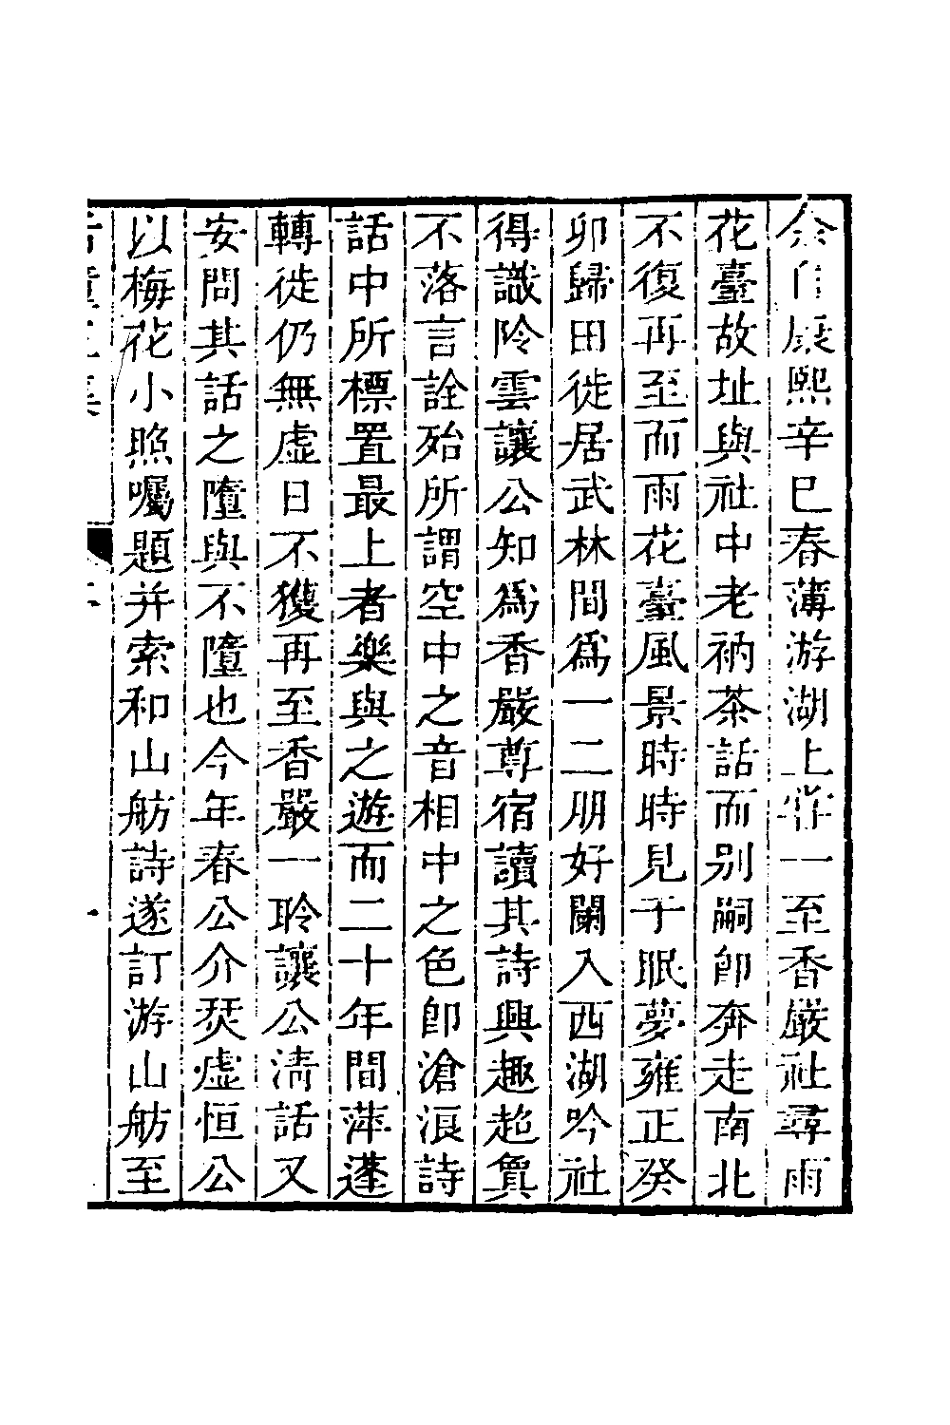 余自康熙辛巳春薄游湖上嘗一至香嚴社尋雨
花臺故址與社中老衲茶話而别嗣卽奔走南北
不復再至而雨花臺風景時時見于眠夢雍正癸
卯歸田徙居武林間爲一二朋好闌入西湖吟社
得識阾雲讓公知爲香嚴尊宿讀其詩興趣超敻
不落言詮殆所謂空中之音相中之色卽滄浪詩
話中所標置最上者樂與之遊而二十年間萍蓬
轉徙仍無虛日不獲再至香嚴一聆讓公淸話又
安問其話之墮與不墮也今年春公介炗虛恒公
以梅花小照囑題并索和山舫詩遂訂游山舫至